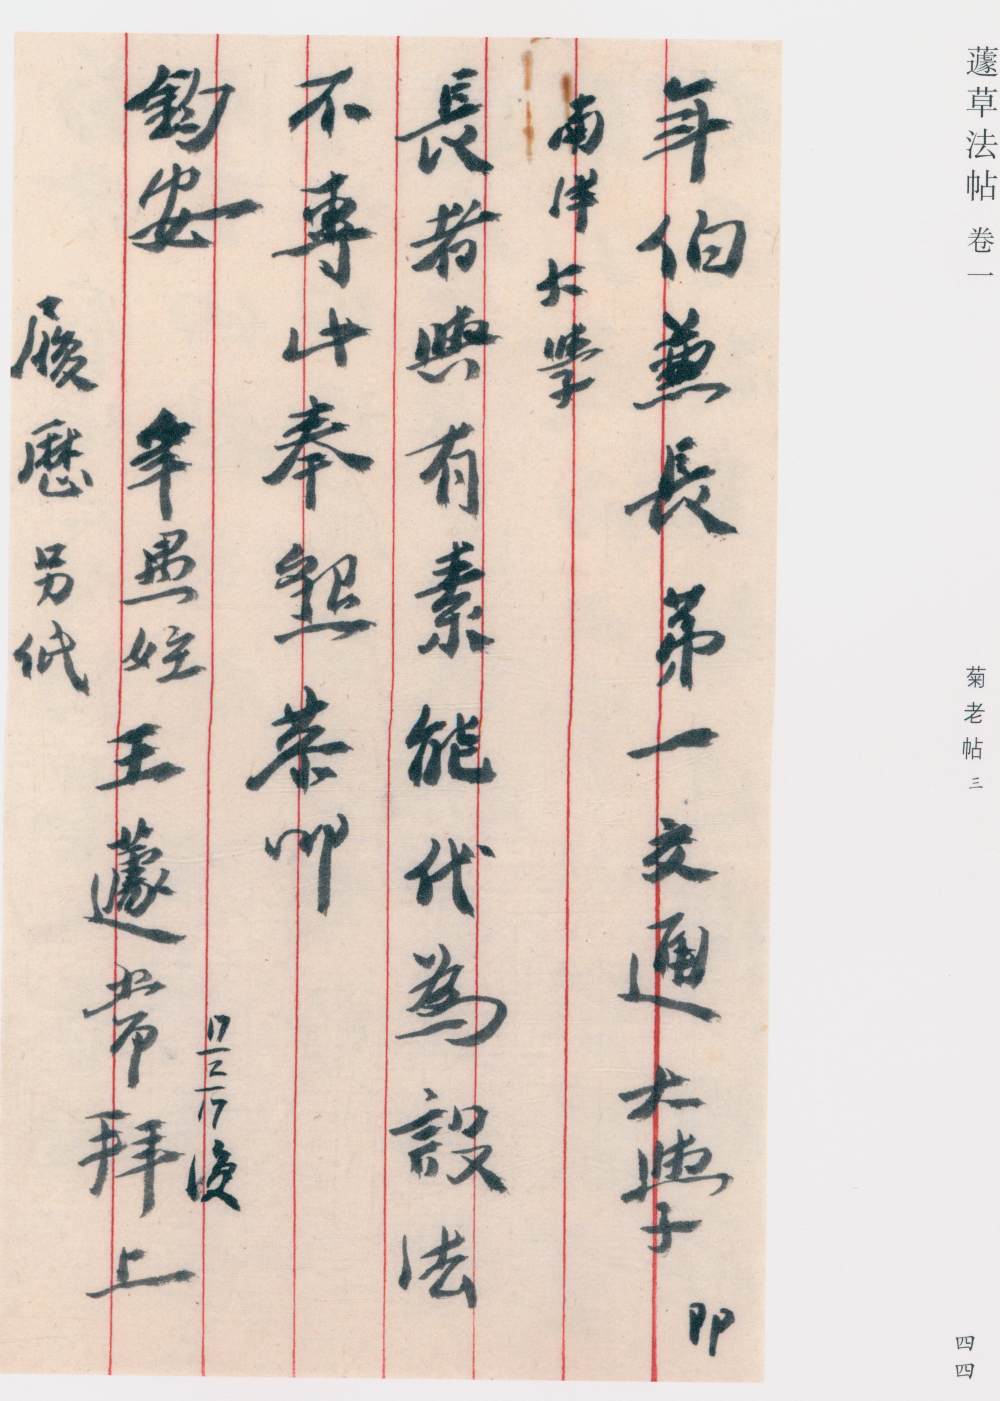 蘧草法帖 卷一
菊老帖 三
四四
年伯兼長第一交通大學 即
南洋大學
長者與有素能代為設法
不專此奉懇恭叩
鈞安 年愚姪王蘧常拜上
履歷另紙